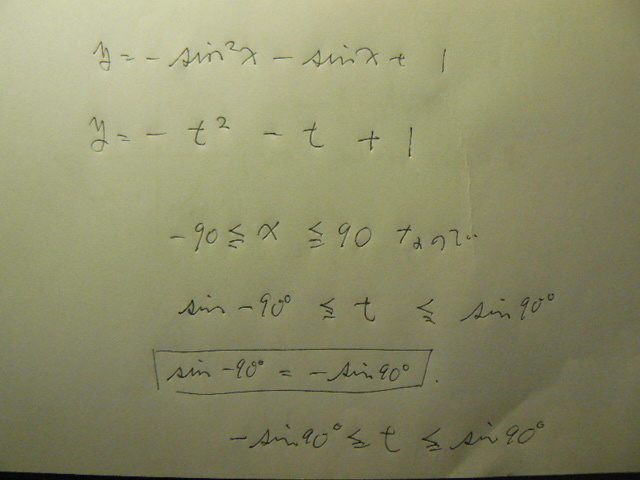 y = - sin²x - sinx + 1
y = - t² - t + 1
-90 ≦ x ≦ 90 なので..
sin -90° ≦ t ≦ sin 90°
sin -90° = - sin 90° .
- sin 90° ≦ t ≦ sin 90°